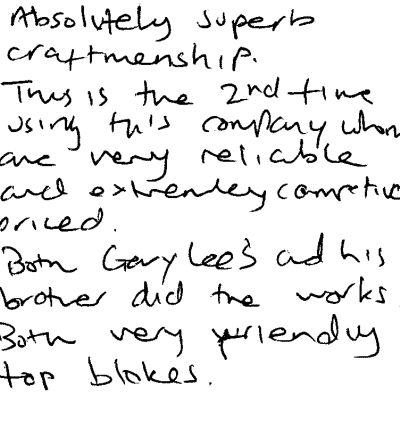 Absolutely superb
craftmenship.
This is the 2nd time
using this company whom
are very reliable
and extremley competive
priced.
Both Gary Lee's ad his
brother did the works
Both very friendly
top blokes.